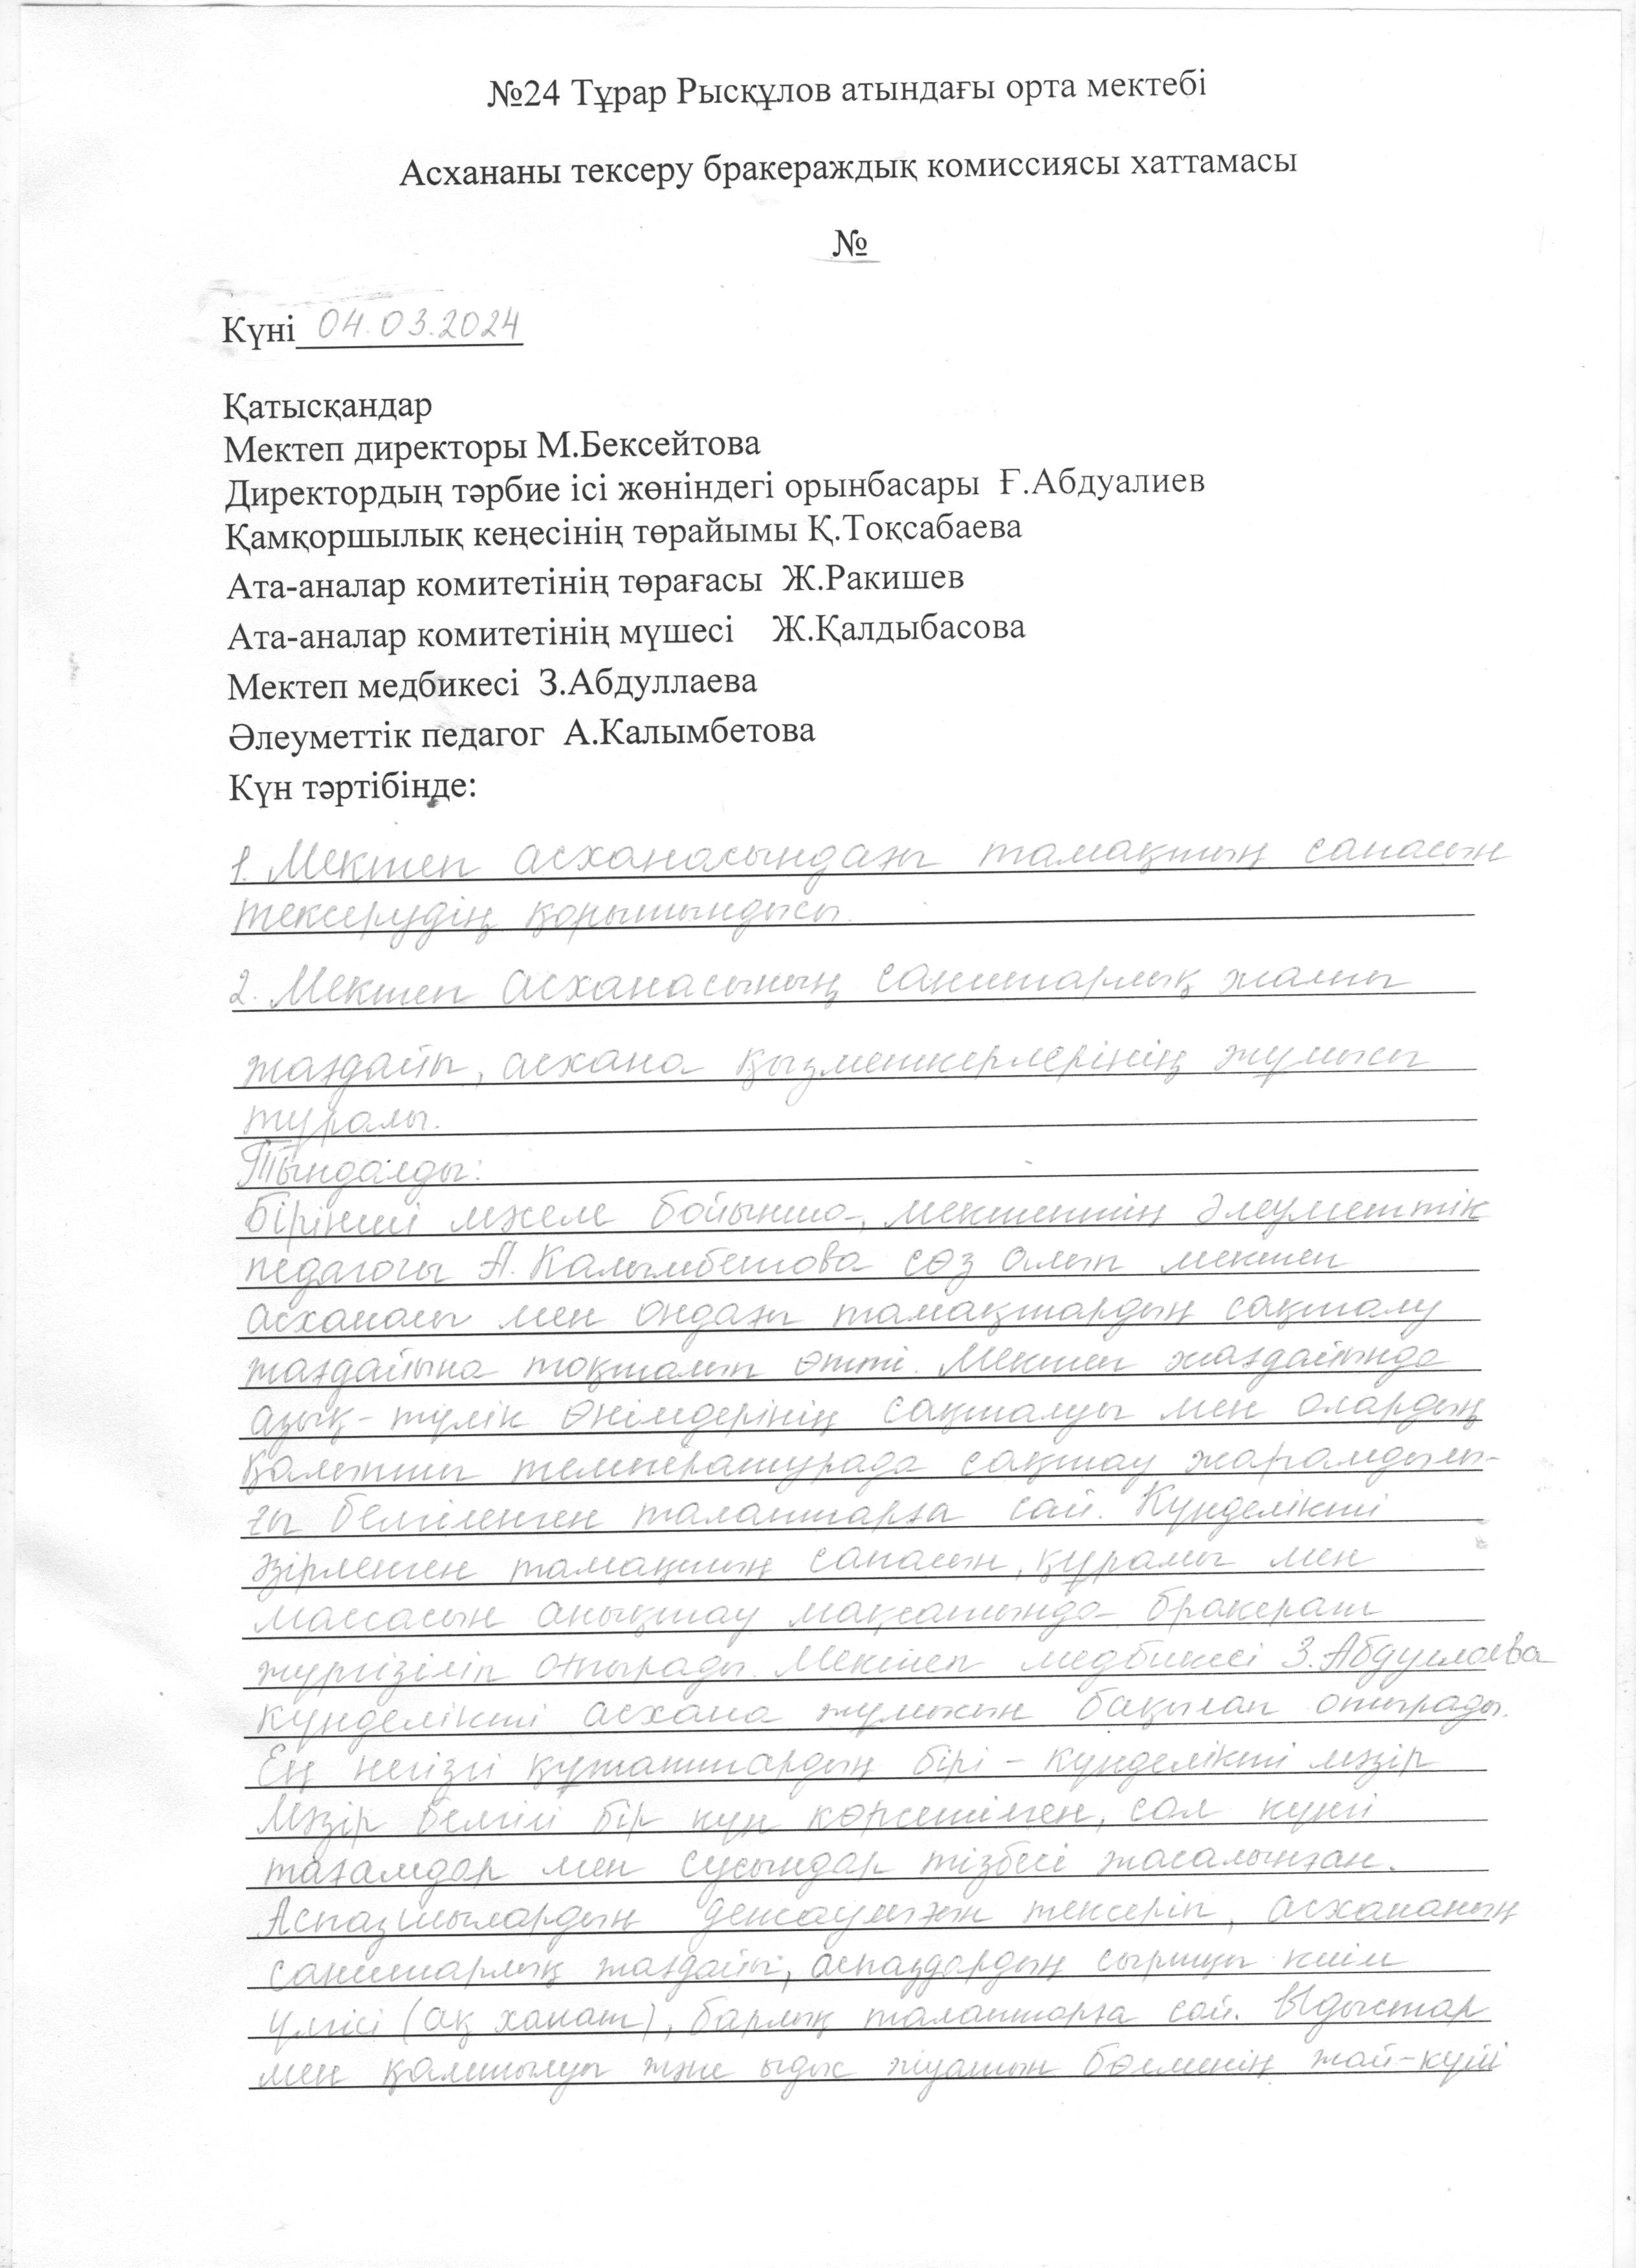 №24 Тұрар Рысқұлов атындағы орта мектебі
Асхананы тексеру бракераждық комиссиясы хаттамасы
№
Күні 04.03.2024
Қатысқандар
Мектеп директоры М.Бексейтова
Директордың тәрбие ісі жөніндегі орынбасары Ғ.Абдуалиев
Қамқоршылық кеңесінің төрайымы Қ.Тоқсабаева
Ата-аналар комитетінің төрағасы Ж.Ракишев
Ата-аналар комитетінің мүшесі Ж.Қалдыбасова
Мектеп медбикесі З.Абдуллаева
Әлеуметтік педагог А.Калымбетова
Күн тәртібінде:
1. Мектеп асханасындағы тамақтың сапасын
тексерудің қорытындысы.
2. Мектеп асханасының санитарлық жалпы
жағдайы, асхана қызметкерлерінің жұмысы
туралы.
Тыңдалды:
Бірінші мәселе бойынша, мектептің әлеуметтік
педагогы А. Калымбетова сөз алып мектеп
асханасы мен ондағы тамақтардың сақталу
жағдайына тоқталып өтті. Мектеп жағдайында
азық-түлік өнімдерінің сақталуы мен олардың
қалыпты температурада сақтау жарамдылы-
ғы белгіленген талаптарға сай. Күнделікті
әзірленген тамақтың сапасын, құрамы мен
массасын анықтау мақсатында бракераж
жүргізіліп отырады. Мектеп медбикесі З.Абдуллаева
күнделікті асхана жұмысын бақылап отырады.
Ең негізгі құжаттардың бірі – күнделікті мәзір
Мәзір белгілі бір күн көрсетілген, сол күнгі
тағамдар мен сусындар тізбесі жасалынған.
Аспазшылардың денсаулығын тексеріп, асхананың
санитарлық жағдайы, аспаздардың сыртқы киім
үлгісі (ақ халат), барлық талаптарға сай. Ыдыстар
мен қалтылуы және ыдыс жуатын бөлменің жай-күйі